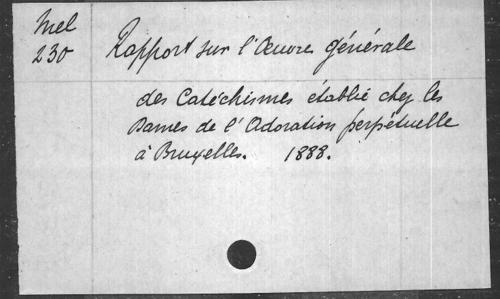 Mel
230
Rapport sur l'Œuvre générale
des Catéchismes établie chez les
Dames de l'Adoration perpétuelle
à Bruxelles. 1888.